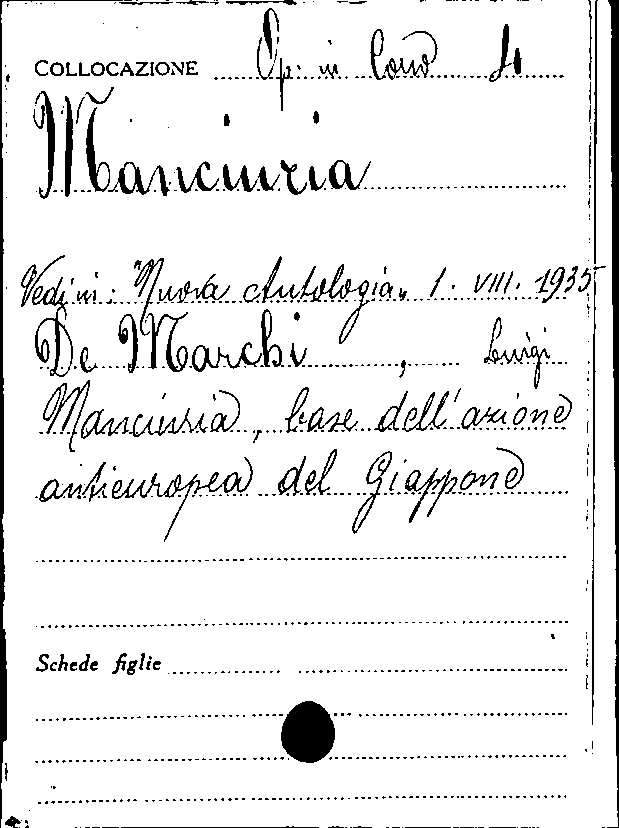 COLLOCAZIONE Op. in Corso 4
Manciuria
Vedi in: "Nuova Antologia„ 1. VIII. 1935
De Marchi, Luigi
Manciuria, base dell'azione
antieuropea del Giappone
Schede figlie